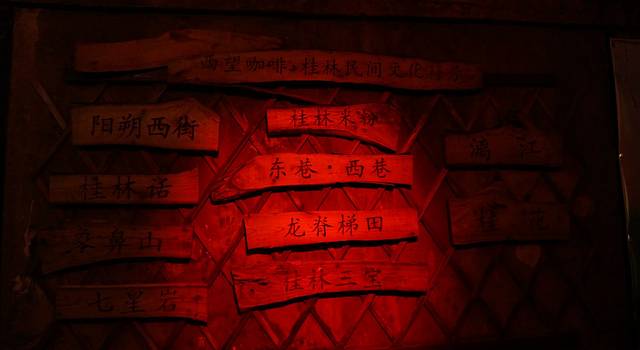 西望咖啡·桂林民间文化
阳朔西街
桂林话
象鼻山
七星岩
桂林米粉
东巷·西巷
龙脊梯田
桂林三宝
漓江